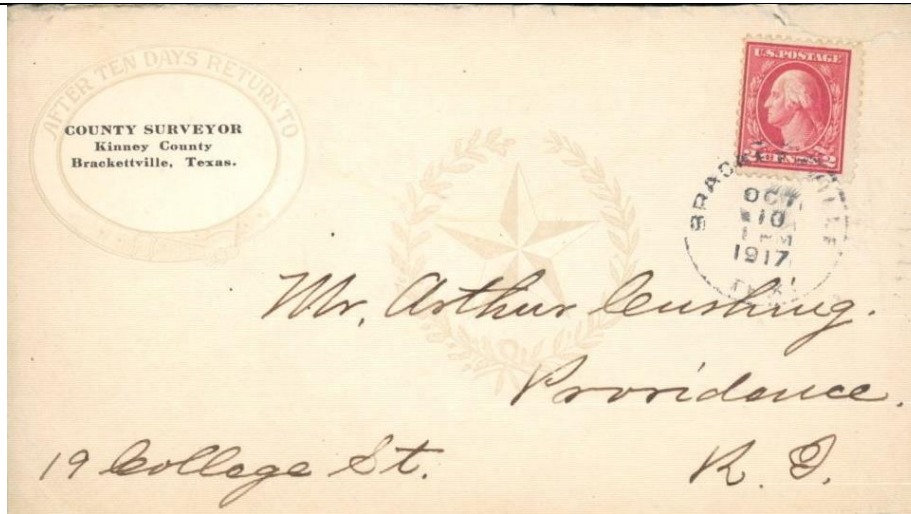 AFTER TEN DAYS RETURN TO
COUNTY SURVEYOR
Kinney County
Brackettville, Texas.
U.S. POSTAGE
2 CENTS 2
BRACKETTVILLE
OCT
10
1917
TEX.
Mr. Arthur Cushing.
Providence.
19 College St.
R. I.